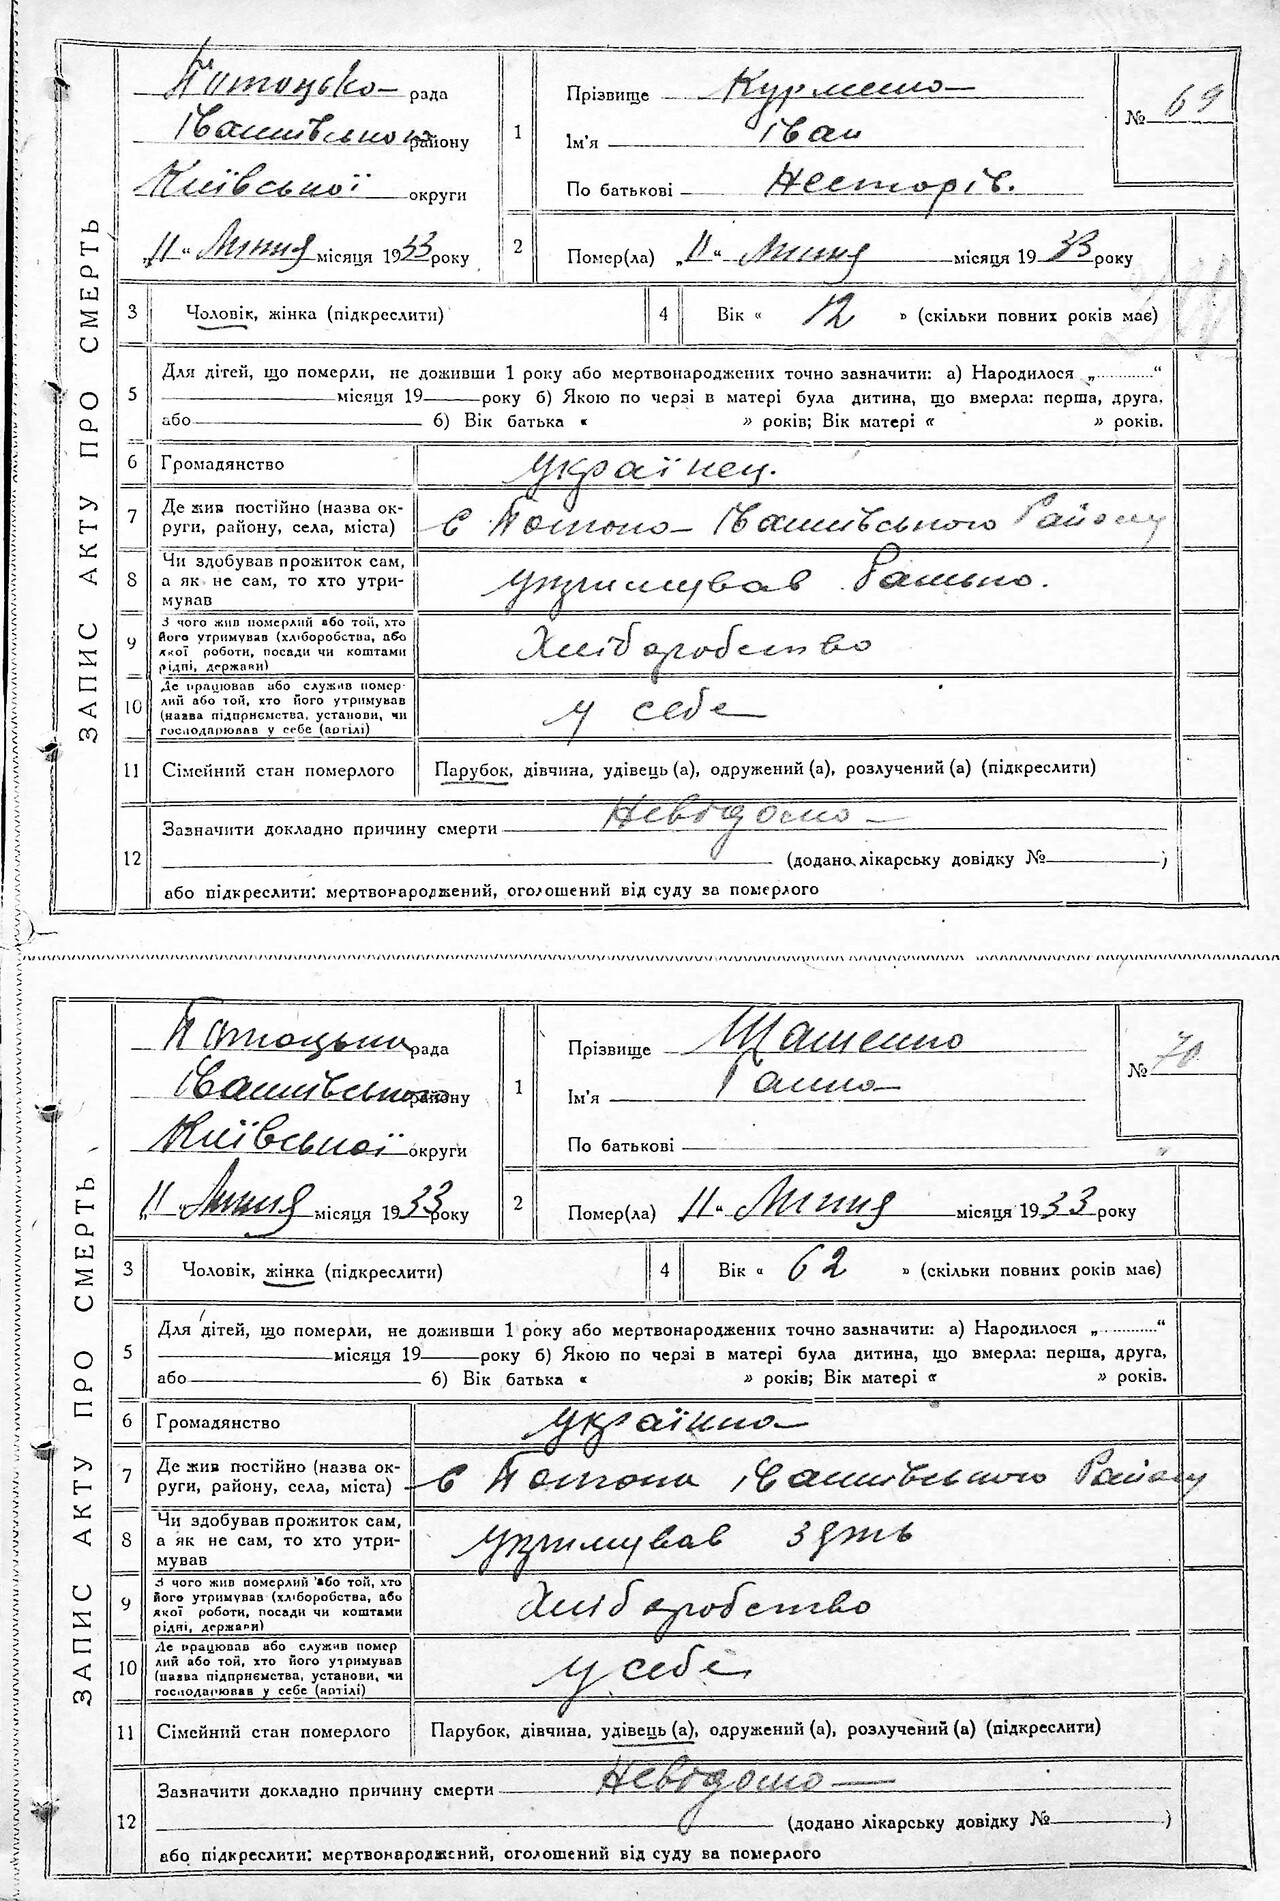 ЗАПИС АКТУ ПРО СМЕРТЬ
Потоцько рада
Іванківського району
Київської округи
„11“ Липня місяця 1933 року
1
Прізвище
Ім'я Іван
По батькові Несторів.
№ 69
2
Помер(ла) „11“ Липня місяця 1933 року
3
Чоловік, жінка (підкреслити)
4
Вік « 12 » (скільки повних років має)
5
Для дітей, що померли, не доживши 1 року або мертвонароджених точно зазначити: а) Народилося „ “
місяця 19 року б) Якою по черзі в матері була дитина, що вмерла: перша, друга,
або б) Вік батька « » років; Вік матері « » років.
6
Громадянство
українец.
7
Де жив постійно (назва ок-
руги, району, села, міста)
с Потоко Іванківського Району
8
Чи здобував прожиток сам,
а як не сам, то хто утри-
мував
утримував батько.
9
З чого жив померлий або той, хто
його утримував (хліборобства, або
якої роботи, посади чи коштами
рідні, держави)
Хліборобство
10
Де працював або служив помер-
лий або той, хто його утримував
(назва підприємства, установи, чи
господарював у себе (артілі)
у себе
11
Сімейний стан померлого
Парубок, дівчина, удівець (а), одружений (а), розлучений (а) (підкреслити)
12
Зазначити докладно причину смерти Невідомо
(додано лікарську довідку № )
або підкреслити: мертвонароджений, оголошений від суду за померлого
ЗАПИС АКТУ ПРО СМЕРТЬ
Потоцька рада
Іванківського району
Київської округи
„11“ Липня місяця 1933 року
1
Прізвище
Ім'я Ганна
По батькові
№ 70
2
Помер(ла) „11“ Липня місяця 1933 року
3
Чоловік, жінка (підкреслити)
4
Вік « 62 » (скільки повних років має)
5
Для дітей, що померли, не доживши 1 року або мертвонароджених точно зазначити: а) Народилося „ “
місяця 19 року б) Якою по черзі в матері була дитина, що вмерла: перша, друга,
або б) Вік батька « » років; Вік матері « » років.
6
Громадянство
українка
7
Де жив постійно (назва ок-
руги, району, села, міста)
с Потоки Іванківського Району
8
Чи здобував прожиток сам,
а як не сам, то хто утри-
мував
утримував зять
9
З чого жив померлий або той, хто
його утримував (хліборобства, або
якої роботи, посади чи коштами
рідні, держави)
Хліборобство
10
Де працював або служив помер
лий або той, хто його утримував
(назва підприємства, установи, чи
господарював у себе (артілі)
у себе
11
Сімейний стан померлого
Парубок, дівчина, удівець (а), одружений (а), розлучений (а) (підкреслити)
12
Зазначити докладно причину смерти Невідомо
(додано лікарську довідку № )
або підкреслити: мертвонароджений, оголошений від суду за померлого